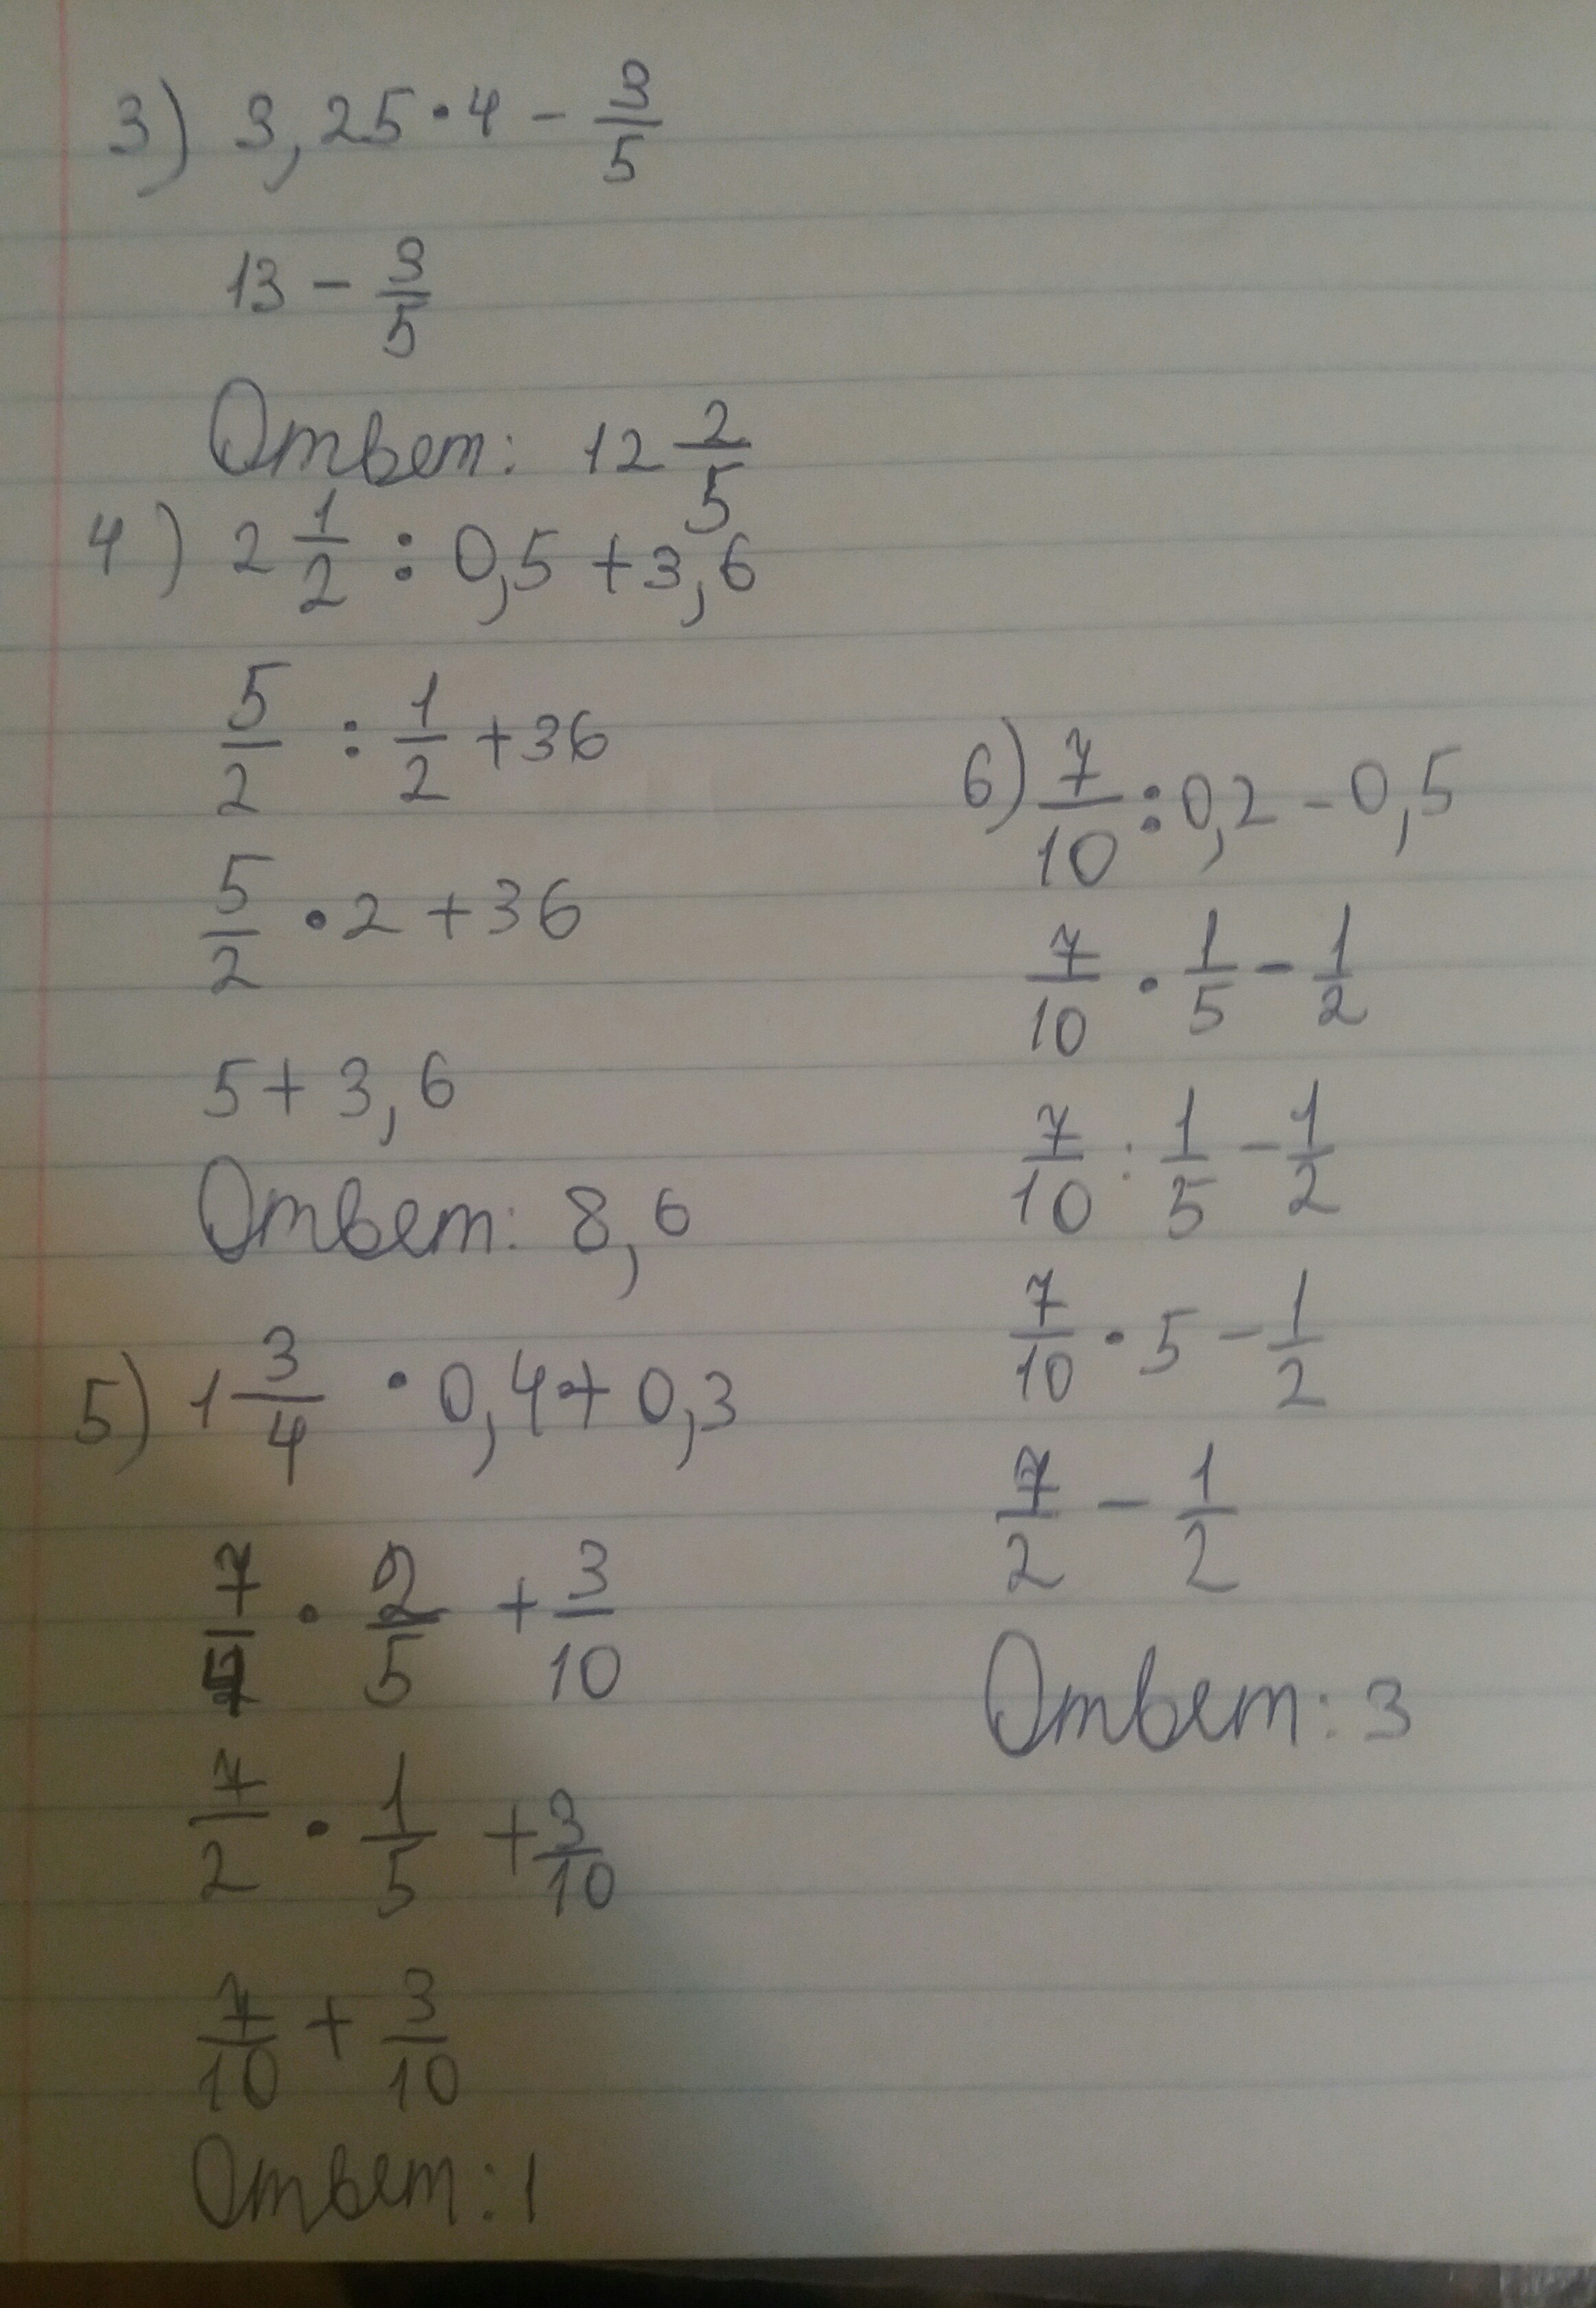 3) 3,25·4 - 3/5
13 - 3/5
Ответ: 12 2/5
4) 2 1/2 : 0,5 + 3,6
5/2 : 1/2 + 36
5/2 · 2 + 36
5 + 3,6
Ответ: 8,6
5) 1 3/4 · 0,4 + 0,3
7/4 · 2/5 + 3/10
7/2 · 1/5 + 3/10
7/10 + 3/10
Ответ: 1
6) 7/10 : 0,2 - 0,5
7/10 · 1/5 - 1/2
7/10 : 1/5 - 1/2
7/10 · 5 - 1/2
7/2 - 1/2
Ответ: 3